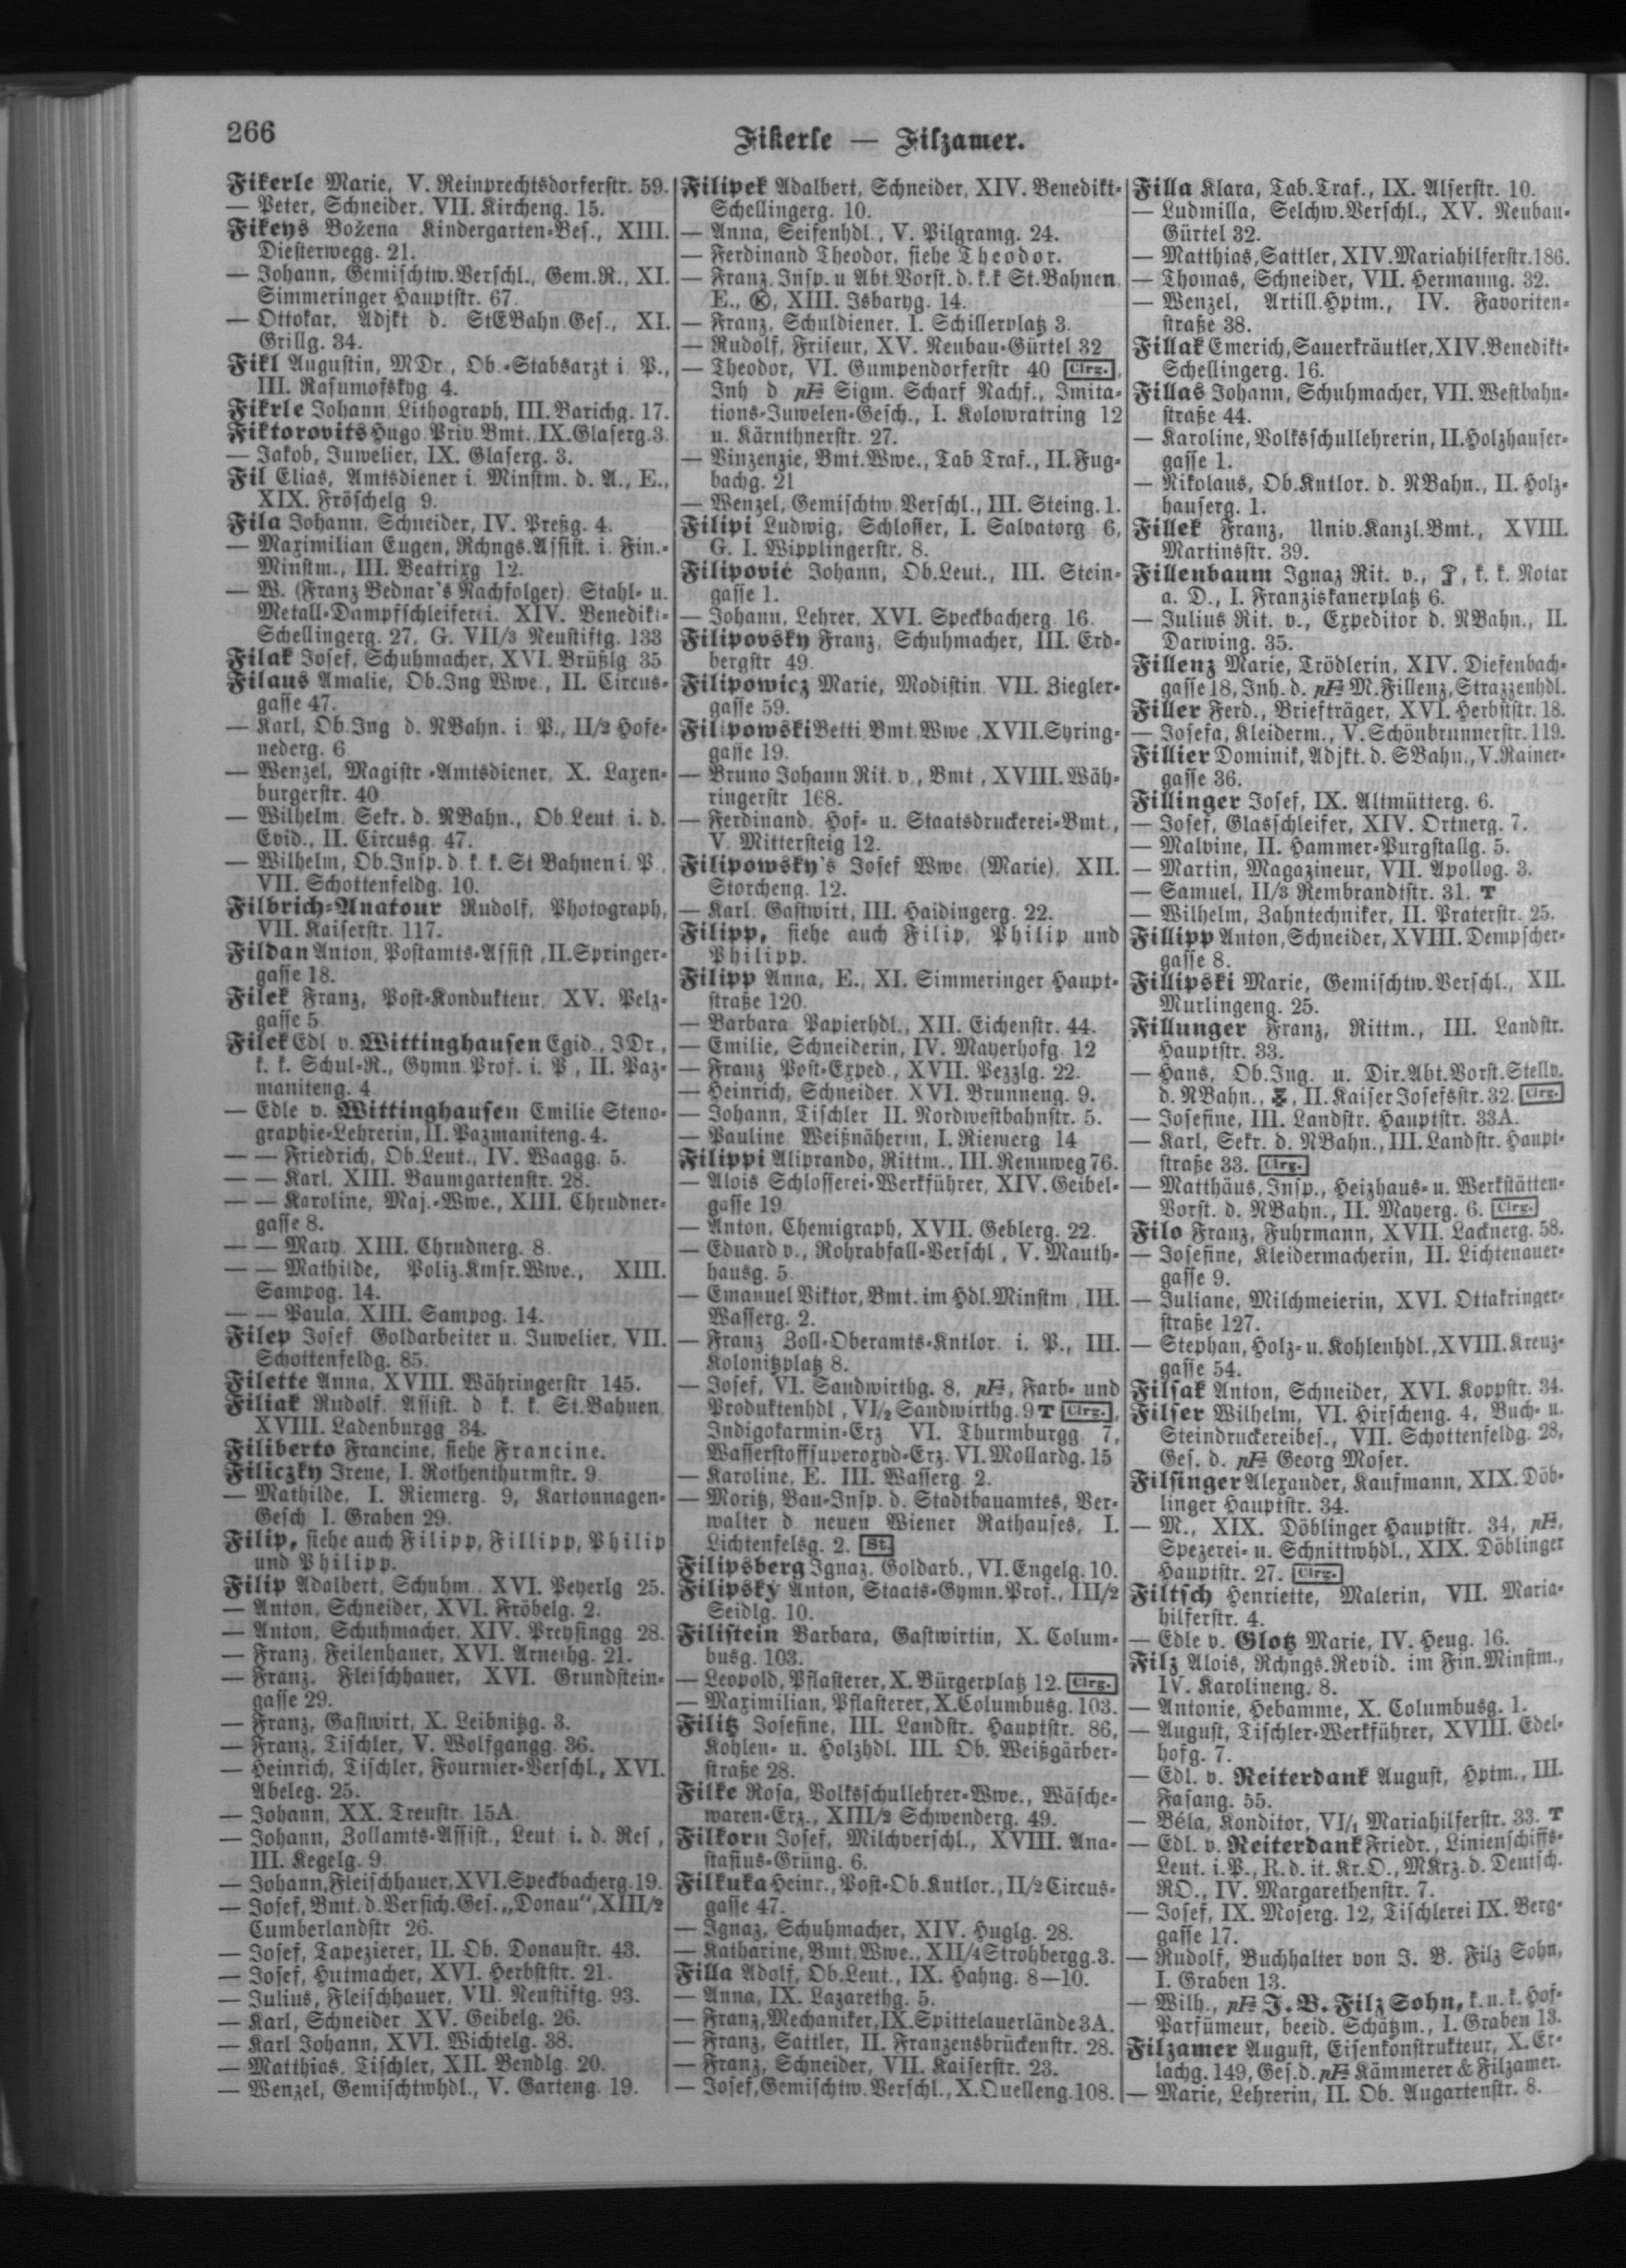 266
Fikerle — Filzamer.
Fikerle Marie, V. Reinprechtsdorferstr. 59.
— Peter, Schneider, VII. Kircheng. 15.
Fikeys Božena Kindergarten-Bes., XIII.
Diesterwegg. 21.
— Johann, Gemischtw.Verschl., Gem.R., XI.
Simmeringer Hauptstr. 67.
— Ottokar, Adjkt d. StEBahn Ges., XI.
Grillg. 34.
Fikl Augustin, MDr., Ob.-Stabsarzt i. P.,
III. Rasumofskyg 4.
Fikrle Johann Lithograph, III. Barichg. 17.
Fiktorovits Hugo Priv.Bmt. IX.Glaserg.3.
— Jakob, Juwelier, IX. Glaserg. 3.
Fil Elias, Amtsdiener i. Minstm. d. A., E.,
XIX. Fröschelg 9.
Fila Johann, Schneider, IV. Preßg. 4.
— Maximilian Eugen, Rchngs.Assist. i. Fin.-
Minstm., III. Beatrixg 12.
— W. (Franz Bednar's Nachfolger) Stahl- u.
Metall-Dampfschleiferei. XIV. Benedikt-
Schellingerg. 27, G. VII/3 Neustiftg. 133
Filak Josef, Schuhmacher, XVI. Brüßlg 35
Filaus Amalie, Ob.Ing Wwe., II. Circus-
gasse 47.
— Karl, Ob.Ing d. NBahn. i. P., II/2 Hofe-
nederg. 6
— Wenzel, Magistr.-Amtsdiener, X. Laxen-
burgerstr. 40
— Wilhelm, Sekr. d. NBahn., Ob.Leut. i. d.
Evid., II. Circusg. 47.
— Wilhelm, Ob.Insp. d. k. k. St Bahnen i. P.,
VII. Schottenfeldg. 10.
Filbrich-Anatour Rudolf, Photograph,
VII. Kaiserstr. 117.
Fildan Anton, Postamts-Assist., II.Springer-
gasse 18.
Filek Franz, Post-Kondukteur XV. Pelz-
gasse 5
Filek Edl v. Wittinghausen Egid., JDr.,
k. k. Schul-R., Gymn.Prof. i. P., II. Paz-
maniteng. 4
— Edle v. Wittinghausen Emilie Steno-
graphie-Lehrerin, II. Pazmaniteng. 4.
— — Friedrich, Ob.Leut., IV. Waagg. 5.
— — Karl, XIII. Baumgartenstr. 28.
— — Karoline, Maj.-Wwe., XIII. Chrudner-
gasse 8.
— — Mary XIII. Chrudnerg. 8
— — Mathilde, Poliz.Kmsr.Wwe., XIII.
Sampog. 14.
— — Paula, XIII. Sampog. 14.
Filep Josef Goldarbeiter u. Juwelier, VII.
Schottenfeldg. 85.
Filette Anna, XVIII. Währingerstr. 145.
Filiak Rudolf, Assist. d. k. k. St.Bahnen
XVIII. Ladenburgg 34.
Filiberto Francine, siehe Francine.
Filiczky Irene, I. Rothenthurmstr. 9.
— Mathilde, I. Riemerg. 9, Kartonnagen-
Gesch I. Graben 29.
Filip, siehe auch Filipp, Fillipp, Philip
und Philipp.
Filip Adalbert, Schuhm., XVI. Peyerlg 25.
— Anton, Schneider, XVI. Fröbelg. 2.
— Anton, Schuhmacher, XIV. Preysingg 28.
— Franz, Feilenhauer, XVI. Arnethg. 21.
— Franz, Fleischhauer, XVI. Grundstein-
gasse 29.
— Franz, Gastwirt, X. Leibnitzg. 3.
— Franz, Tischler, V. Wolfgangg. 36.
— Heinrich, Tischler, Fournier-Verschl., XVI.
Abeleg. 25.
— Johann, XX. Treustr. 15A.
— Johann, Zollamts-Assist., Leut. i. d. Res.,
III. Kegelg. 9
— Johann, Fleischhauer, XVI.Speckbacherg.19.
— Josef, Bmt. d. Versich.Ges. „Donau“, XIII/2
Cumberlandstr 26.
— Josef, Tapezierer, II. Ob. Donaustr. 43.
— Josef, Hutmacher, XVI. Herbststr. 21.
— Julius, Fleischhauer, VII. Neustiftg. 93.
— Karl, Schneider XV. Geibelg. 26.
— Karl Johann, XVI. Wichtelg. 38.
— Matthias, Tischler, XII. Bendlg. 20.
— Wenzel, Gemischtwhdl., V. Garteng. 19.
Filipek Adalbert, Schneider, XIV. Benedikt-
Schellingerg. 10.
— Anna, Seifenhdl., V. Pilgramg. 24.
— Ferdinand Theodor, siehe Theodor.
— Franz, Insp. u Abt.Vorst. d. k.k St.Bahnen
E., Ⓚ, XIII. Isbaryg. 14.
— Franz, Schuldiener, I. Schillerplatz 3.
— Rudolf, Friseur, XV. Neubau-Gürtel 32
— Theodor, VI. Gumpendorferstr 40 Clrg.,
Inh d pF Sigm. Scharf Nachf., Imita-
tions-Juwelen-Gesch., I. Kolowratring 12
u. Kärnthnerstr. 27.
— Vinzenzie, Bmt.Wwe., Tab Traf., II. Fug-
bachg. 21
— Wenzel, Gemischtw Verschl., III. Steing. 1.
Filipi Ludwig, Schlosser, I. Salvatorg 6,
G. I. Wipplingerstr. 8.
Filipović Johann, Ob.Leut., III. Stein-
gasse 1.
— Johann, Lehrer, XVI. Speckbacherg 16.
Filipovsky Franz, Schuhmacher, III. Erd-
bergstr 49.
Filipowicz Marie, Modistin VII. Ziegler-
gasse 59.
Filipowski Betti Bmt.Wwe., XVII.Syring-
gasse 19.
— Bruno Johann Rit. v., Bmt., XVIII. Wäh-
ringerstr 168.
— Ferdinand, Hof- u. Staatsdruckerei-Bmt.,
V. Mittersteig 12.
Filipowsky's Josef Wwe. (Marie), XII.
Storcheng. 12.
— Karl Gastwirt, III. Haidingerg. 22.
Filipp, siehe auch Filip, Philip und
Philipp.
Filipp Anna, E., XI. Simmeringer Haupt-
straße 120.
— Barbara Papierhdl., XII. Eichenstr. 44.
— Emilie, Schneiderin, IV. Mayerhofg. 12
— Franz Post-Exped., XVII. Pezzlg. 22.
— Heinrich, Schneider XVI. Brunneng. 9.
— Johann, Tischler II. Nordwestbahnstr. 5.
— Pauline Weißnäherin, I. Riemerg 14
Filippi Aliprando, Rittm., III. Rennweg 76.
— Alois Schlosserei-Werkführer, XIV. Geibel-
gasse 19
— Anton, Chemigraph, XVII. Geblerg. 22.
— Eduard v., Rohrabfall-Verschl., V. Mauth-
hausg. 5
— Emanuel Viktor, Bmt. im Hdl.Minstm., III.
Wasserg. 2.
— Franz Zoll-Oberamts-Kntlor. i. P., III.
Kolonitzplatz 8.
— Josef, VI. Sandwirthg. 8, pF, Farb- und
Produktenhdl., VI/2 Sandwirthg. 9 T Clrg.,
Indigokarmin-Erz VI. Thurmburgg 7,
Wasserstoffsuperoxyd-Erz. VI. Mollardg. 15
— Karoline, E. III. Wasserg. 2.
— Moritz, Bau-Insp. d. Stadtbauamtes, Ver-
walter d neuen Wiener Rathauses, I.
Lichtenfelsg. 2. St.
Filipsberg Ignaz, Goldarb., VI. Engelg. 10.
Filipský Anton, Staats-Gymn.Prof., III/2
Seidlg. 10.
Filistein Barbara, Gastwirtin, X. Colum-
busg. 103.
— Leopold, Pflasterer, X. Bürgerplatz 12. Clrg.
— Maximilian, Pflasterer, X.Columbusg. 103.
Filitz Josefine, III. Landstr. Hauptstr. 86,
Kohlen- u. Holzhdl. III. Ob. Weißgärber-
straße 28.
Filke Rosa, Volksschullehrer-Wwe., Wäsche-
waren-Erz., XIII/2 Schwenderg. 49.
Filkorn Josef, Milchverschl., XVIII. Ana-
stasius-Grüng. 6.
Filkuka Heinr., Post-Ob.Kntlor., II/2 Circus-
gasse 47.
— Ignaz, Schuhmacher, XIV. Huglg. 28.
— Katharine, Bmt.Wwe., XII/4 Strohbergg. 3.
Filla Adolf, Ob.Leut., IX. Hahng. 8—10.
— Anna, IX. Lazarethg. 5.
— Franz, Mechaniker, IX.Spittelauerlände 3A.
— Franz, Sattler, II. Franzensbrückenstr. 28.
— Franz, Schneider, VII. Kaiserstr. 23.
— Josef, Gemischtw.Verschl., X.Quelleng.108.
Filla Klara, Tab.Traf., IX. Alserstr. 10.
— Ludmilla, Selchw.Verschl., XV. Neubau-
Gürtel 32.
— Matthias, Sattler, XIV.Mariahilferstr.186.
— Thomas, Schneider, VII. Hermanng. 32.
— Wenzel, Artill.Hptm., IV. Favoriten-
straße 38.
Fillak Emerich, Sauerkräutler, XIV.Benedikt-
Schellingerg. 16.
Fillas Johann, Schuhmacher, VII. Westbahn-
straße 44.
— Karoline, Volksschullehrerin, II.Holzhauser-
gasse 1.
— Nikolaus, Ob.Kntlor. d. NBahn., II. Holz-
hauserg. 1.
Fillek Franz, Univ.Kanzl.Bmt., XVIII.
Martinsstr. 39.
Fillenbaum Ignaz Rit. v., , k. k. Notar
a. D., I. Franziskanerplatz 6.
— Julius Rit. v., Expeditor d. NBahn., II.
Darwing. 35.
Fillenz Marie, Trödlerin, XIV. Diefenbach-
gasse 18, Inh. d. pF M.Fillenz, Strazzenhdl.
Filler Ferd., Briefträger, XVI. Herbststr. 18.
— Josefa, Kleiderm., V. Schönbrunnerstr. 119.
Fillier Dominik, Adjkt. d. SBahn., V.Rainer-
gasse 36.
Fillinger Josef, IX. Altmütterg. 6.
— Josef, Glasschleifer, XIV. Ortnerg. 7.
— Malvine, II. Hammer-Purgstallg. 5.
— Martin, Magazineur, VII. Apollog. 3.
— Samuel, II/3 Rembrandtstr. 31. T
— Wilhelm, Zahntechniker, II. Praterstr. 25.
Fillipp Anton, Schneider, XVIII. Dempscher-
gasse 8.
Fillipski Marie, Gemischtw.Verschl., XII.
Murlingeng. 25.
Fillunger Franz, Rittm., III. Landstr.
Hauptstr. 33.
— Hans, Ob.Ing. u. Dir.Abt.Vorst.Stellv.
d. NBahn., , II. Kaiser Josefsstr. 32. Clrg.
— Josefine, III. Landstr. Hauptstr. 33A.
— Karl, Sekr. d. NBahn., III. Landstr. Haupt-
straße 33. Clrg.
— Matthäus, Insp., Heizhaus- u. Werkstätten-
Vorst. d. NBahn., II. Mayerg. 6. Clrg.
Filo Franz, Fuhrmann, XVII. Lacknerg. 58.
— Josefine, Kleidermacherin, II. Lichtenauer-
gasse 9.
— Juliane, Milchmeierin, XVI. Ottakringer-
straße 127.
— Stephan, Holz- u. Kohlenhdl., XVIII. Kreuz-
gasse 54.
Filsak Anton, Schneider, XVI. Koppstr. 34.
Filser Wilhelm, VI. Hirscheng. 4, Buch- u.
Steindruckereibes., VII. Schottenfeldg. 28,
Ges. d. pF Georg Moser.
Filsinger Alexander, Kaufmann, XIX. Döb-
linger Hauptstr. 34.
— M., XIX. Döblinger Hauptstr. 34, pF,
Spezerei- u. Schnittwhdl., XIX. Döblinger
Hauptstr. 27. Clrg.
Filtsch Henriette, Malerin, VII. Maria-
hilferstr. 4.
— Edle v. Glotz Marie, IV. Heug. 16.
Filz Alois, Rchngs.Revid. im Fin.Minstm.,
IV. Karolineng. 8.
— Antonie, Hebamme, X. Columbusg. 1.
— August, Tischler-Werkführer, XVIII. Edel-
hofg. 7.
— Edl. v. Reiterdank August, Hptm., III.
Fasang. 55.
— Béla, Konditor, VI/1 Mariahilferstr. 33. T
— Edl. v. Reiterdank Friedr., Linienschiffs-
Leut. i. P., R. d. it. Kr.O., MKrz. d. Deutsch.
RO., IV. Margarethenstr. 7.
— Josef, IX. Moserg. 12, Tischlerei IX. Berg-
gasse 17.
— Rudolf, Buchhalter von J. B. Filz Sohn,
I. Graben 13.
— Wilh., pF J. B. Filz Sohn, k. u. k. Hof-
Parfümeur, beeid. Schätzm., I. Graben 13.
Filzamer August, Eisenkonstrukteur, X. Er-
lachg. 149, Ges. d. pF Kämmerer & Filzamer.
— Marie, Lehrerin, II. Ob. Augartenstr. 8.